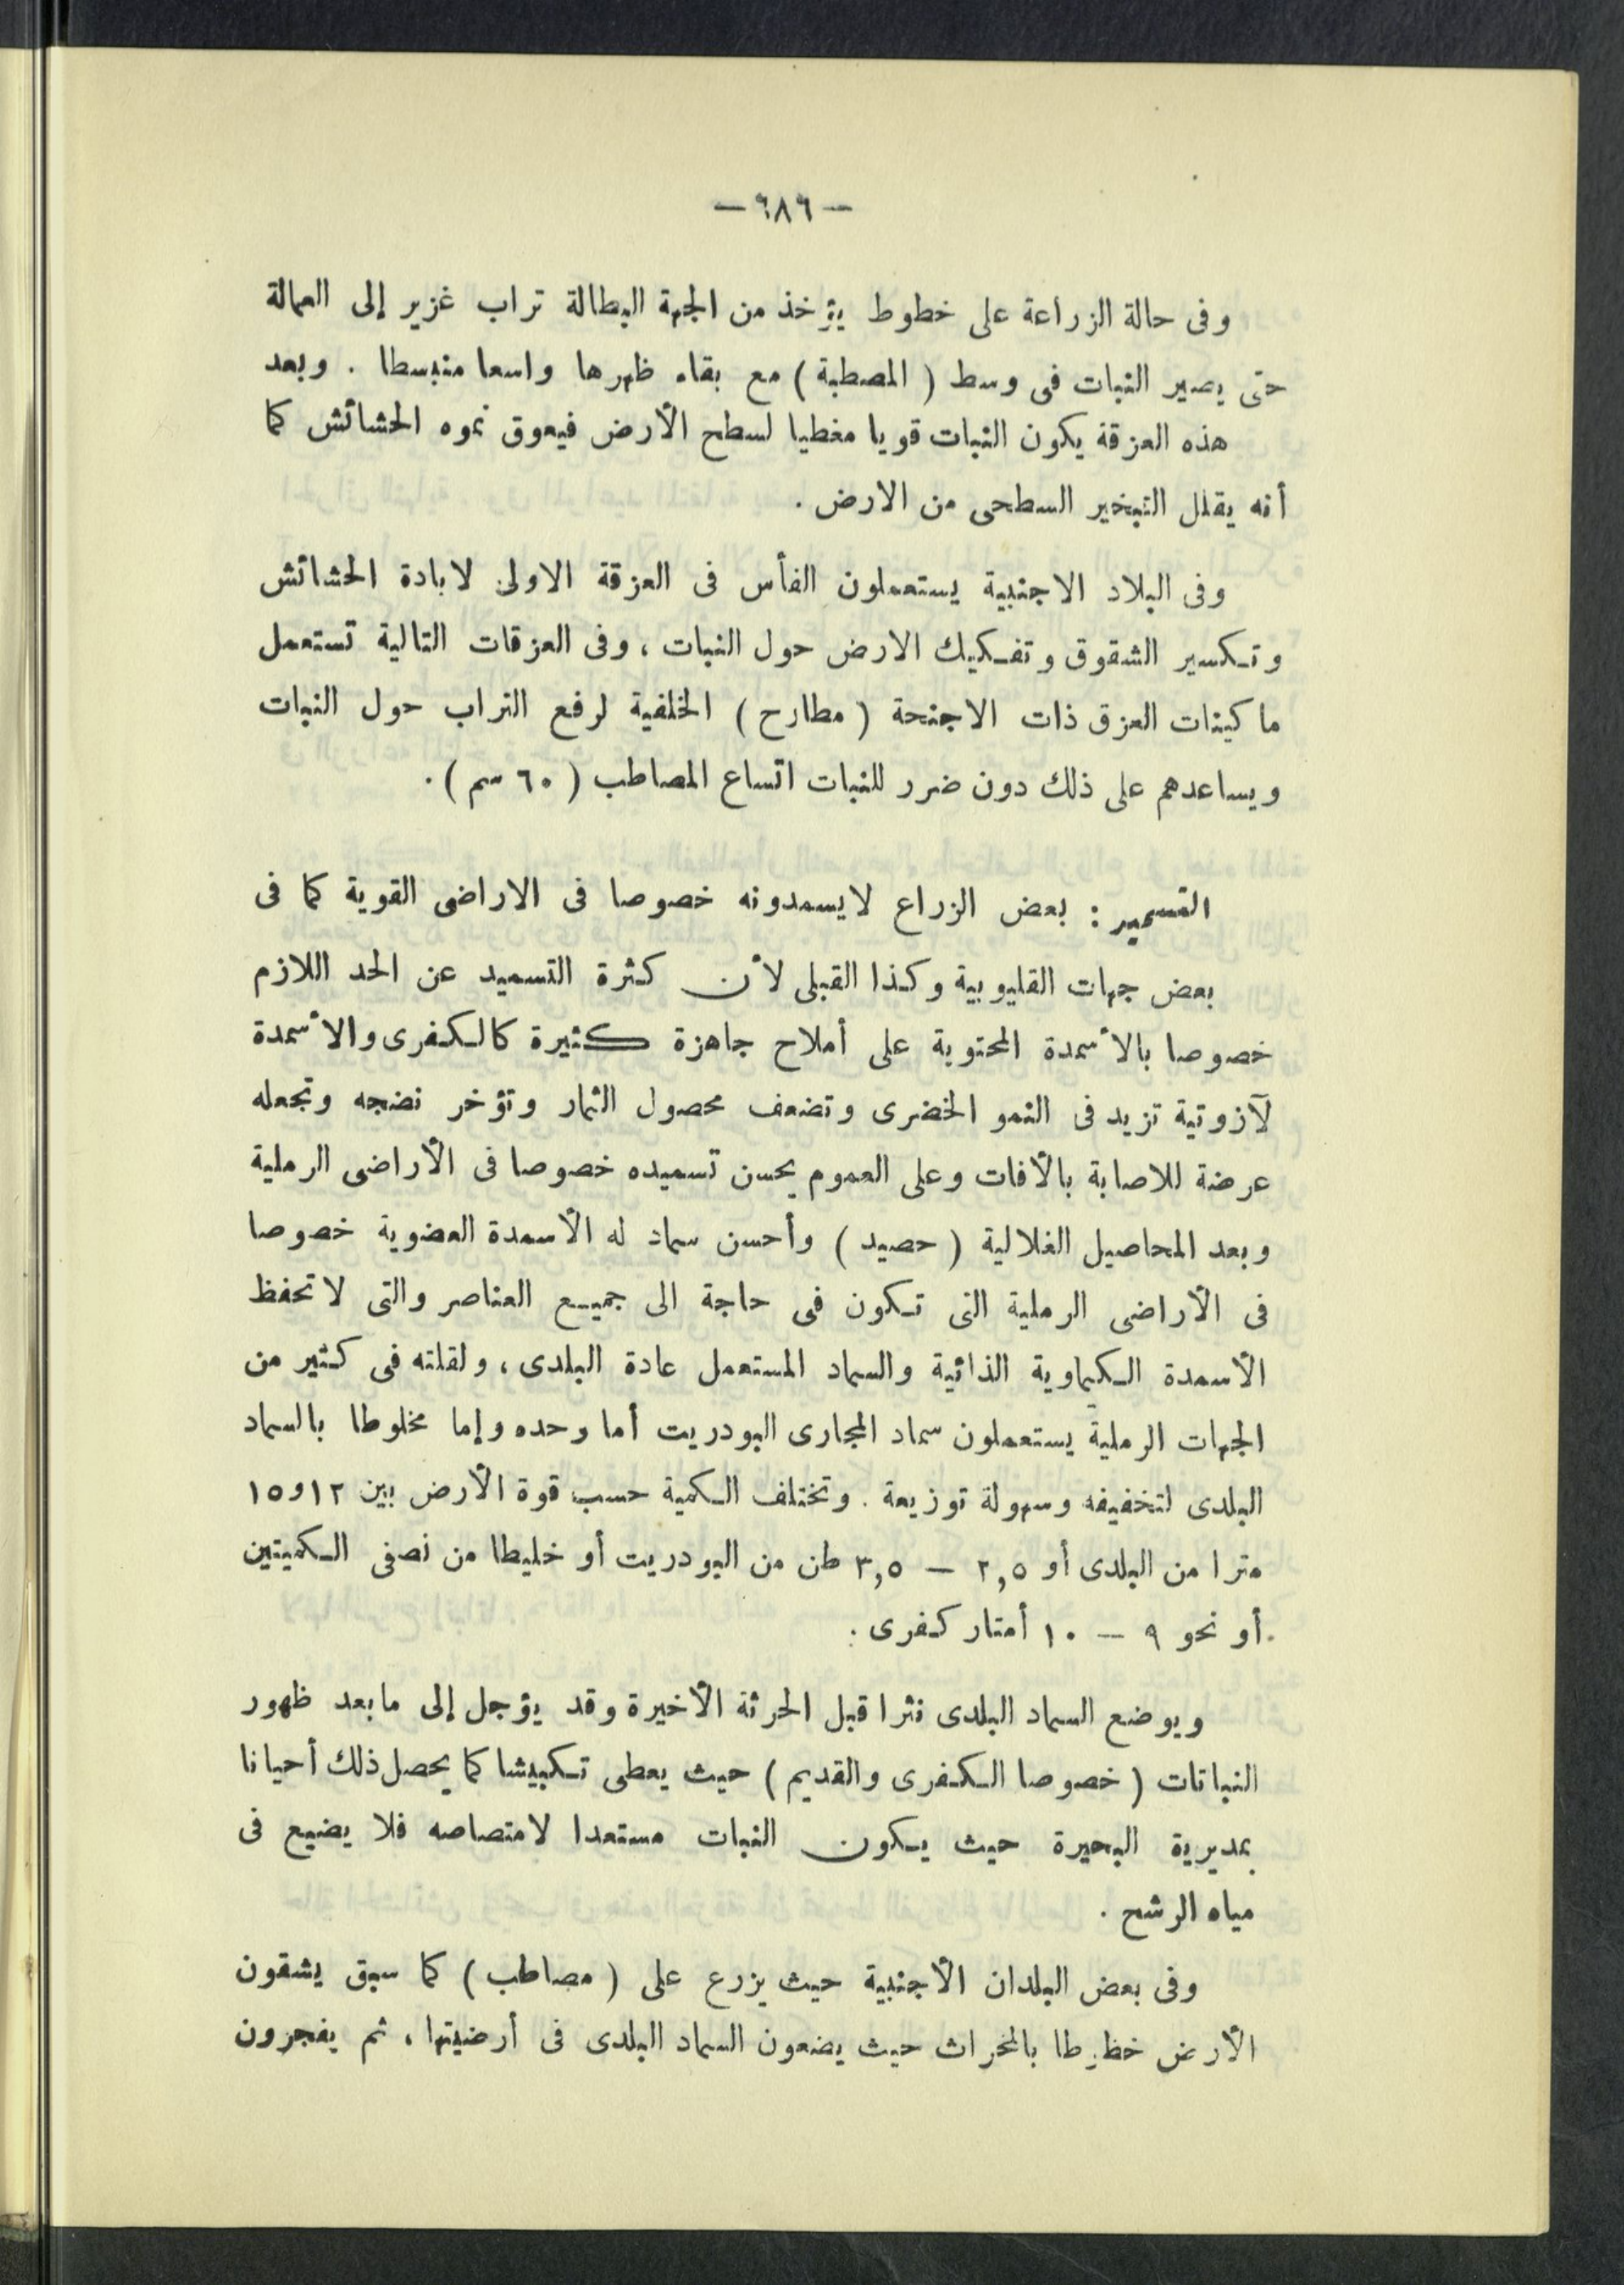 — ٦٨٩ —
وفى حالة الزراعة على خطوط يؤخذ من الجهة البطالة تراب غزير إلى العمالة
حتى يصير النبات فى وسط ( المصطبة ) مع بقاء ظهرها واسعا منبسطا . وبعد
هذه العزقة يكون النبات قويا مغطيا لسطح الأرض فيعوق نموه الحشائش كما
أنه يقلل التبخير السطحى من الارض .
وفى البلاد الاجنبية يستعملون الفأس فى العزقة الاولى لابادة الحشائش
وتكسير الشقوق وتفكيك الارض حول النبات ، وفى العزقات التالية تستعمل
ماكينات العزق ذات الاجنحة ( مطارح ) الخلفية لرفع التراب حول النبات
ويساعدهم على ذلك دون ضرر للنبات اتساع المصاطب ( ٦٠ سم ) .
التسميد : بعض الزراع لايسمدونه خصوصا فى الاراضى القوية كما فى
بعض جهات القليوبية وكذا القبلى لأن كثرة التسميد عن الحد اللازم
خصوصا بالأسمدة المحتوية على أملاح جاهزة كثيرة كالكفرى والأسمدة
لآزوتية تزيد فى النمو الخضرى وتضعف محصول الثمار وتؤخر نضجه وتجعله
عرضة للاصابة بالأفات وعلى العموم يحسن تسميده خصوصا فى الأراضى الرملية
وبعد المحاصيل الغلالية ( حصيد ) وأحسن سماد له الأسمدة العضوية خصوصا
فى الأراضى الرملية التى تكون فى حاجة الى جميع العناصر والتى لا تحفظ
الأسمدة الكيماوية الذائبة والسماد المستعمل عادة البلدى ، ولقلته فى كثير من
الجهات الرملية يستعملون سماد المجارى البودريت أما وحده وإما مخلوطا بالسماد
البلدى لتخفيفه وسهولة توزيعة . وتختلف الكمية حسب قوة الأرض بين ١٢و١٥
مترا من البلدى أو ٢,٥ — ٣,٥ طن من البودريت أو خليطا من نصفى الكميتين
أو نحو ٩ — ١٠ أمتار كفرى .
ويوضع السماد البلدى نثرا قبل الحرثة الأخيرة وقد يؤجل إلى مابعد ظهور
النباتات ( خصوصا الكفرى والقديم ) حيث يعطى تكبيشا كما يحصل ذلك أحيانا
بمديرية البحيرة حيث يكون النبات مستعدا لامتصاصه فلا يضيع فى
مياه الرشح .
وفى بعض البلدان الأجنبية حيث يزرع على ( مصاطب ) كما سبق يشقون
الأرض خطوطا بالمحراث حيث يضعون السماد البلدى فى أرضيتها ، ثم يفجرون